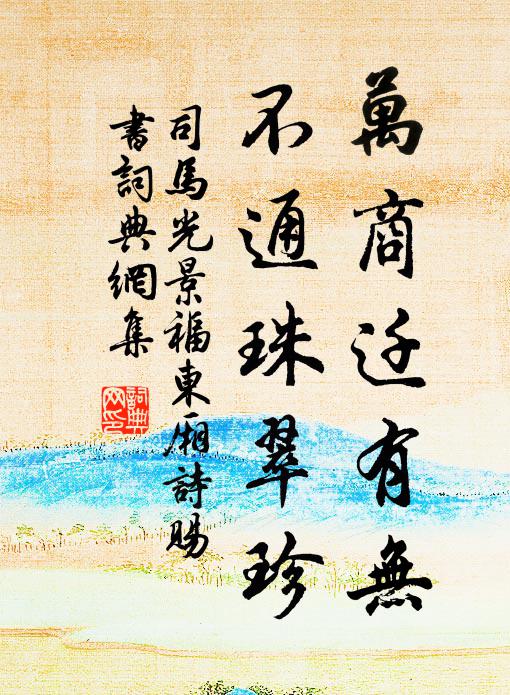 萬商迁有無
不通珠翠珍
司馬光景福東廂詩賜
書詞典網集
詞典
网印